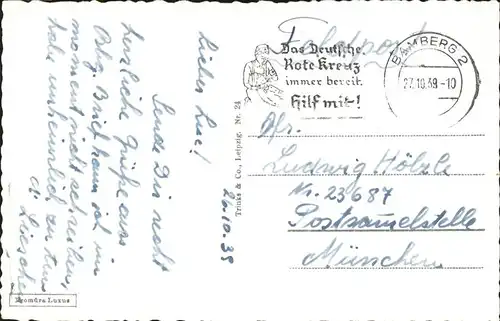 26.10.39
Lieber Luse!
Sende Dir recht
herzliche Grüße aus
Bbg. Brief kann ich im
Moment nicht schreiben,
habe unheimlich zu tun
Lieschen
Trinks & Co., Leipzig. Nr. 24
Bromdra Luxus
Feldpost
Das Deutsche
Rote Kreuz
immer bereit.
Hilf mit!
BAMBERG 2
27.10.39-10
Ludwig Hölzle
Nr. 23687
Postsammelstelle
München